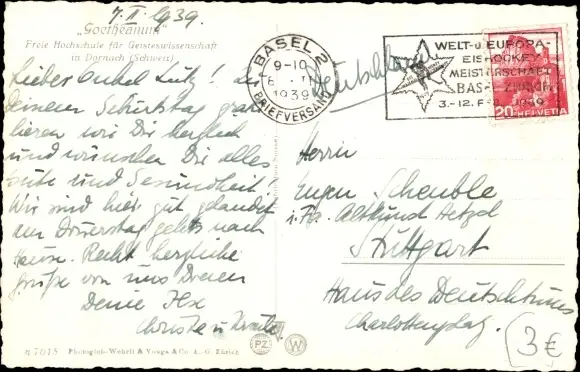 7. II. 1939.
„Goetheanum"
Freie Hochschule für Geisteswissenschaft
in Dornach (Schweiz)
Lieber Onkel Lutz! zu
deinem Geburtstag gratu
lieren wir Dir herzlich
und wünschen Dir alles
Gute und Gesundheit!
Wir sind hier gut gelandet
am Donnerstag gehts nach
Hause. Recht herzliche
Grüße von uns Dreien
Deine
Christe u.
n 7015 Photoglob-Wehrli & Vouga & Co. A.-G. Zürich
BASEL 2
9-10
1939
BRIEFVERSAND
WELT-U EUROPA-
EISHOCKEY
MEISTERSCHAFT
BASEL ZÜRICH
3.-12. FEB. 1939
20 HELVETIA
Deutschland
Herrn
Eugen Scheuble
i. Fa. Altkund Hetzel
Stuttgart
Haus des Deutschtums
Charlottenplatz.
3€
PZ W